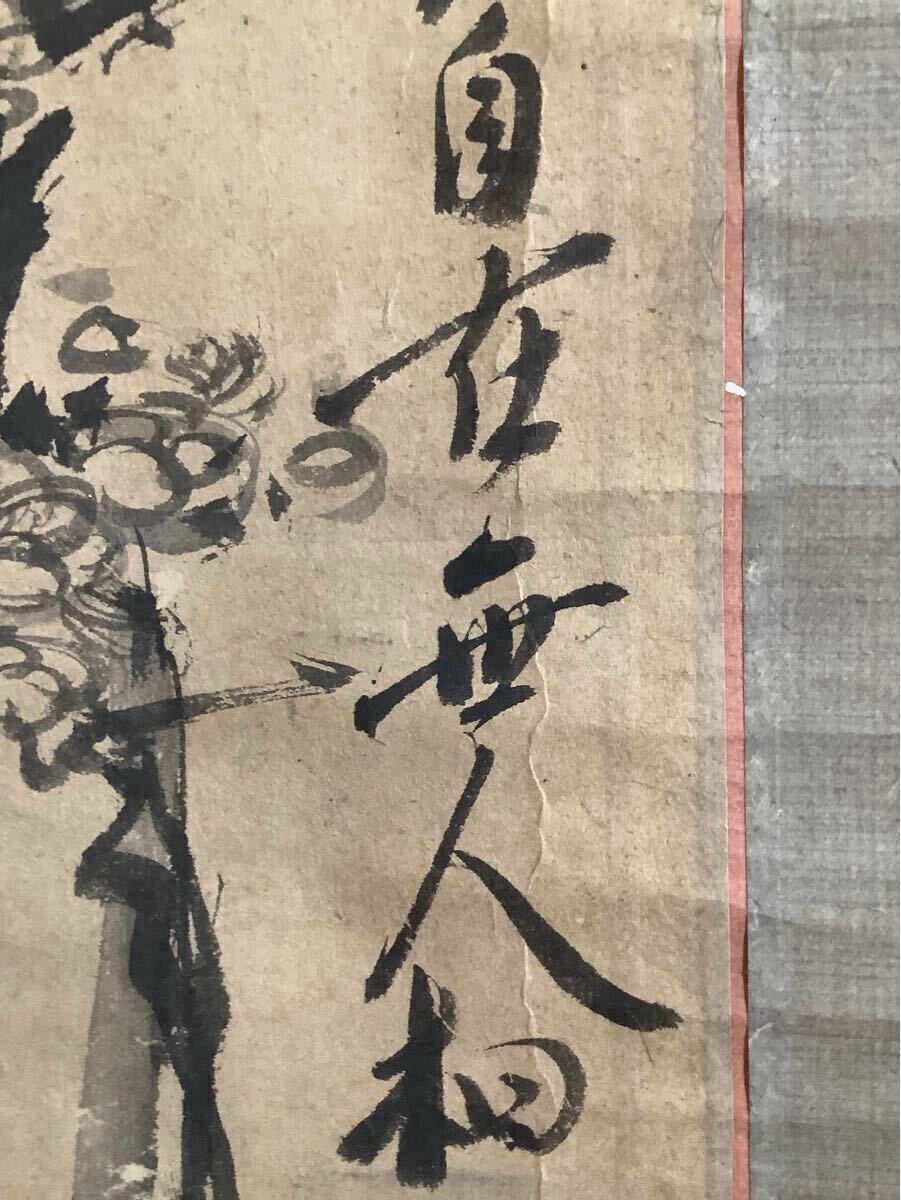 自在無人相